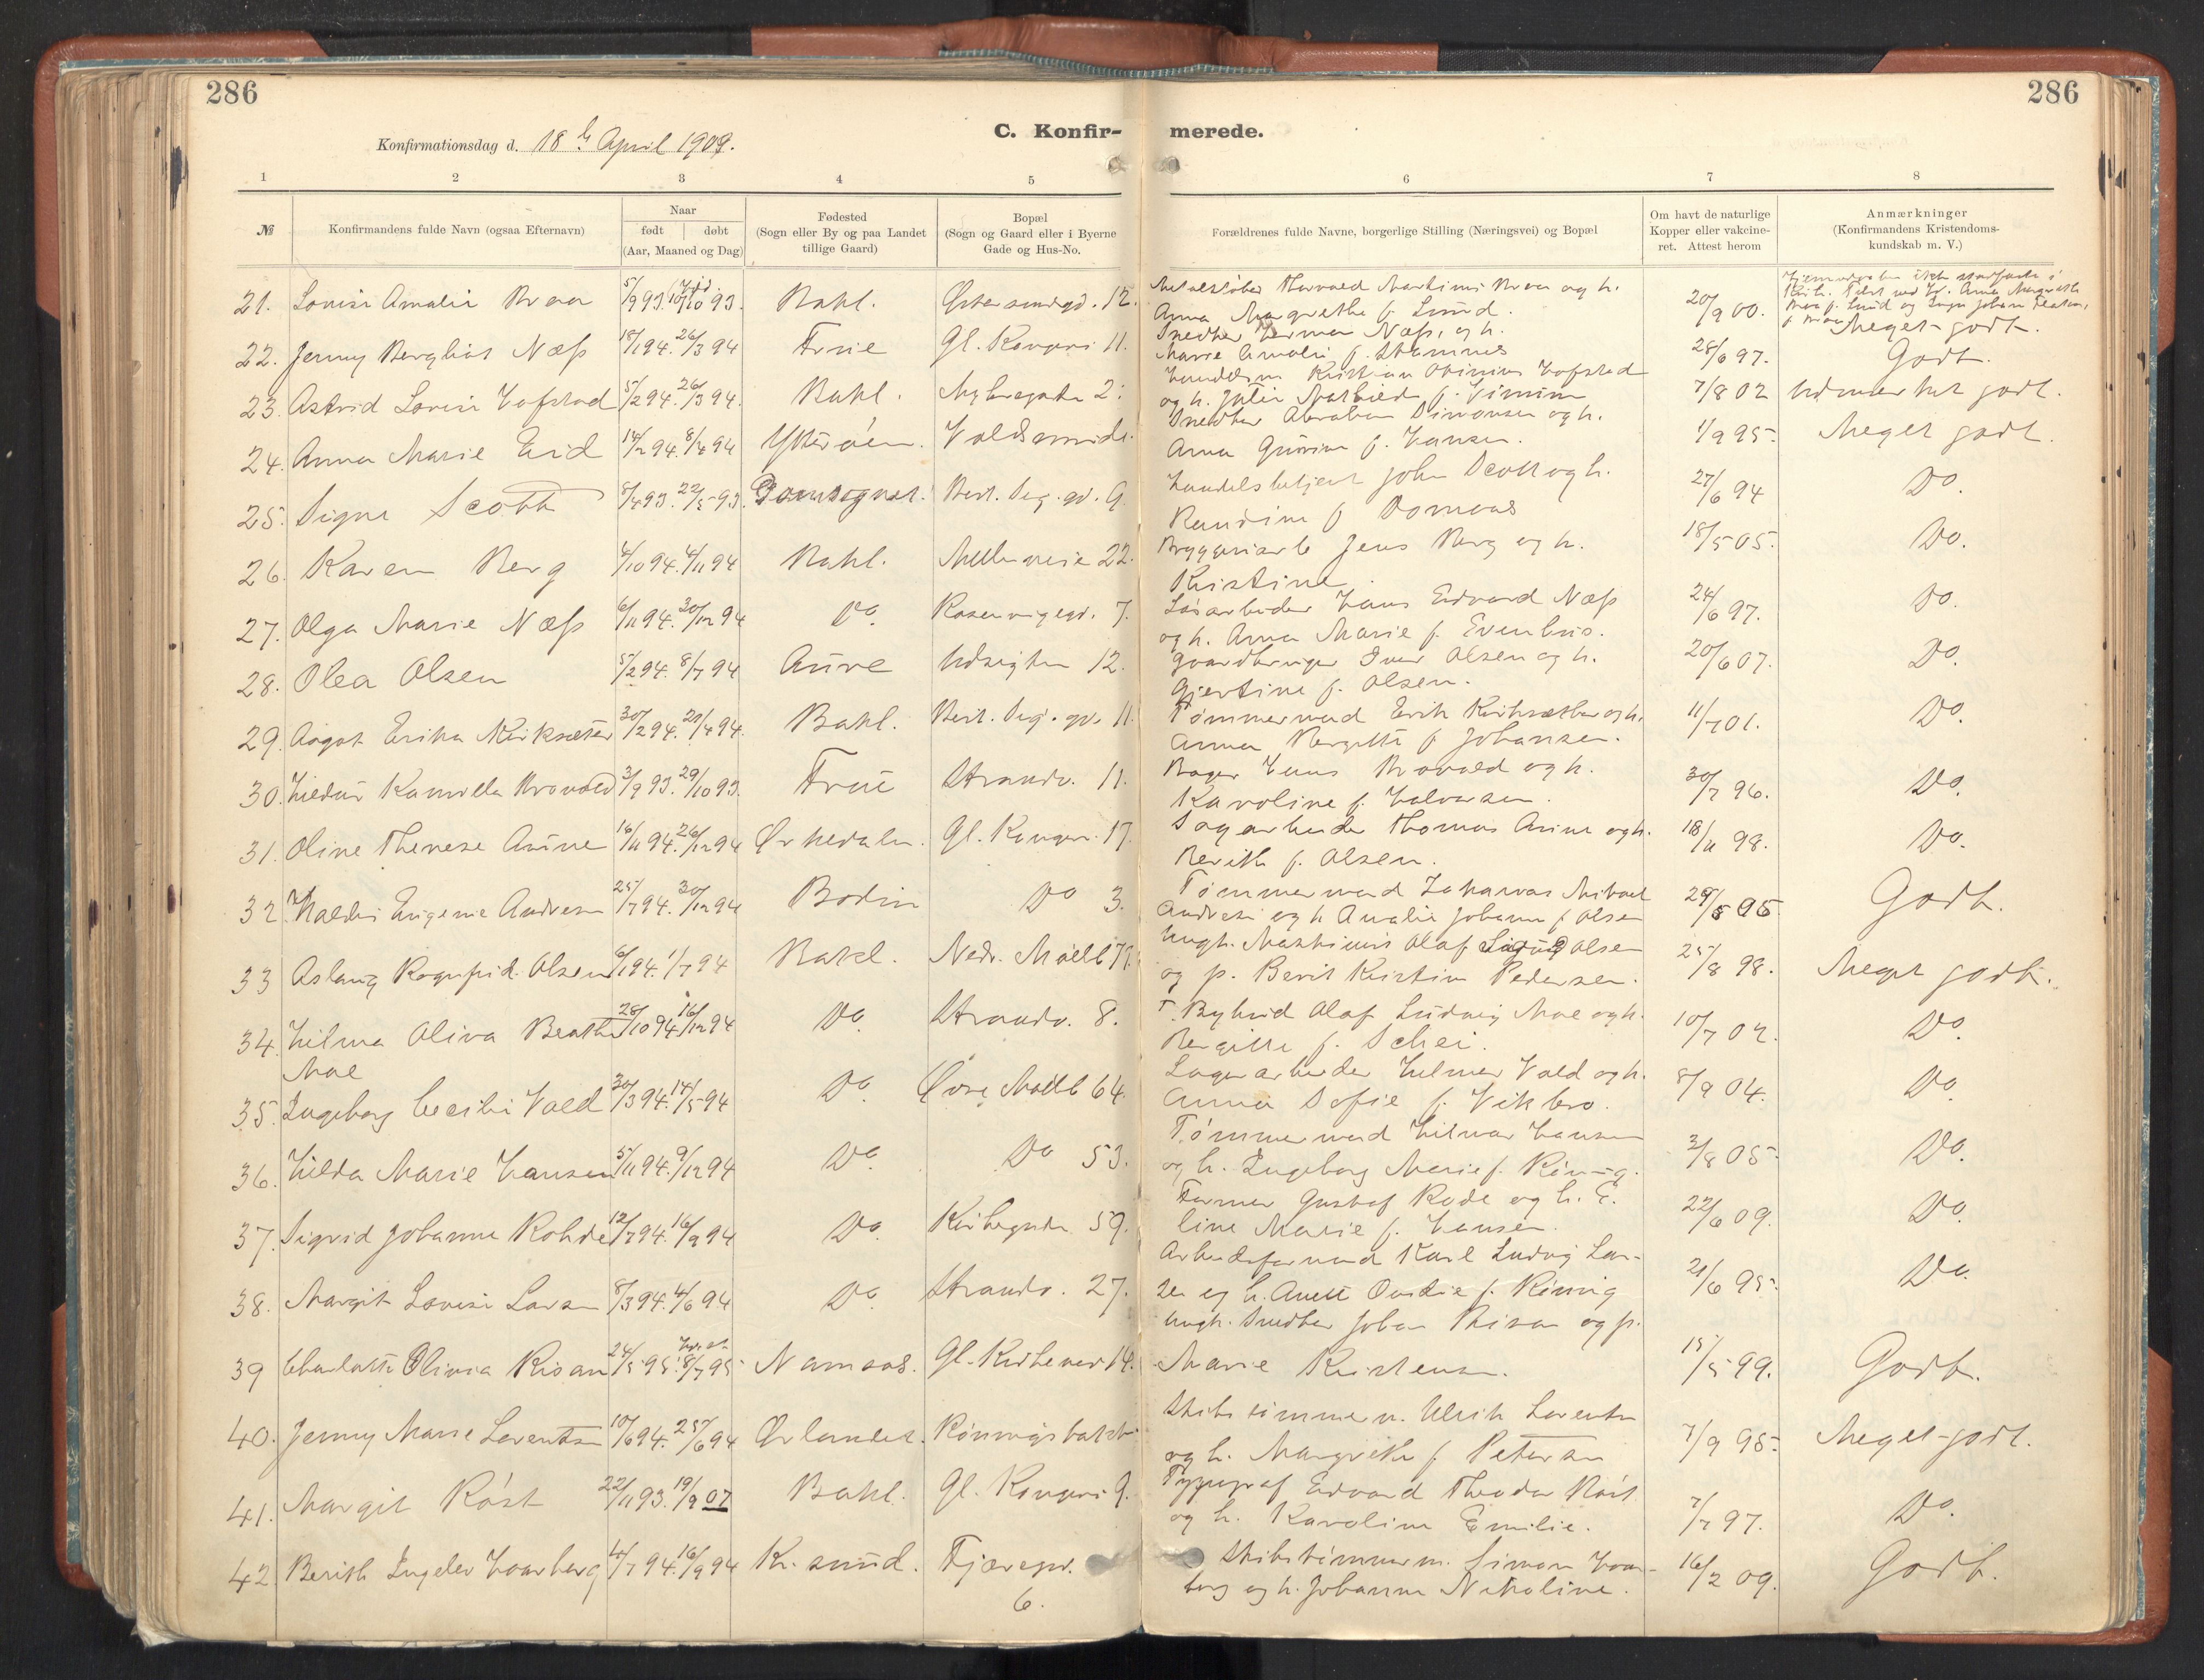 286
286
C. Konfir-
merede.
Konfirmationsdag d. 18de April 1909.
1 2 3 4 5 6 7 8
№
Konfirmandens fulde Navn (ogsaa Efternavn)
Naar
født | døbt
(Aar, Maaned og Dag)
Fødested
(Sogn eller By og paa Landet
tillige Gaard)
Bopæl
(Sogn og Gaard eller i Byerne
Gade og Hus-No.
Forældrenes fulde Navne, borgerlige Stilling (Næringsvei) og Bopæl
Om havt de naturlige
Kopper eller vakcine-
ret. Attest herom
Anmærkninger
(Konfirmandens Kristendoms-
kundskab m. V.)
21. Lovise Amalie Braa 5/9 93. 10/10 93. Bakl. Østersundsgd. 12. Harvald Martinius Braa og h.
Anna Margrethe f. Lund. 20/9 00. Meget godt.
22. Jenny Bergliot Næss 18/1 94. 26/3 94 Frue Gl. Kongevei 11. Snedker Herman Næss, og h.
Marie Amalie f. Stamnes 28/6 97. Godt.
23. Astrid Lovise Hofstad 5/2 94. 26/3 94. Bakl. Nybrogaden 2. Kristian Hofstad
og h. Julie Mathilde f. 7/8 02 Udmerket godt.
24. Anna Marie Eid 14/2 94. 8/4 94 Ytterøen. Voldsminde. Snedker Abraham Simonsen og h.
Anna Gurine f. Hansen. 1/9 95. Meget godt.
25. Signe Scott 5/4 93. 22/5 93. Domsognet. Berit. Seg. gd. 9. Handelsbetjent John Scott og h.
Randine f. Domaas 27/6 94 Do.
26. Karen Berg 4/10 94. 4/11 94 Bakl. Mellemveie 22. Bryggeriarb. Jens Berg og h.
Kristine. 18/5 05. Do.
27. Olga Marie Næss 6/11 94. 30/12 94 Do. Rosenvigegd. 7. Løsarbeider Hans Edvard Næss
og h. Anna Marie f. Evenhus. 24/6 97. Do.
28. Olea Olsen 5/2 94. 8/7 94 Aure Udsigten 12. Gaardbruger Iver Olsen og h.
Gjertine f. Olsen. 20/6 07. Do.
29. Aagot Erika Kirksæter 30/2 94. 21/4 94. Bakl. Berit. Seg. gd. 11. Tømmermand Erik Kirksæther og h.
Anna Bergitte f. Johansen. 11/7 01. Do.
30. Hildur Kamilla Brovold 3/9 93. 29/10 93. Frue Strandv. 11. Bager Hans Brovold og h.
Karoline f. Halvorsen. 30/7 96. Do.
31. Oline Therese Aune 16/11 94. 26/12 94 Ørkedalen. Gl. Kongev. 17. Sagarbeider Thomas Aune og h.
Berith f. Olsen. 18/11 98. Do.
32. Haldis Eugenie Andresen 25/7 94. 30/12 94 Bodin Do 3. Tømmermand Zakarias Mikael
Andresen og h. Amalie Johanne f. Olsen 29/8 95 Godt.
33 Aslaug Ragnfrid Olsen 6/1 94. 1/7 94 Bakl. Nedr. Møllb 71. Ungk. Martinius Olaf Sigurd Olsen
og p. Berit Kristine Pedersen. 25/8 98. Meget godt.
34. Hilma Oliva Beathe 28/10 94. 16/12 94 Do. Strandv. 8. T. Bybud Olaf Ludvig Moe og h.
Moe Bergitte f. Schei. 10/7 02. Do.
35. Ingeborg Cecilie Vold 30/3 94. 14/5 94 Do. Øvre Møllb 64. Lagerarbeider Helmer Vold og h.
Anna Sofie f. Vikbro. 8/9 04. Do.
36. Hilda Marie Hansen 5/11 94. 9/12 94 Do. Do 53. Tømmermand Hilmar Hansen
og h. Ingeborg Marie f. Rönnig. 3/8 05. Do.
37. Sigrid Johanne Rohde 12/7 94. 16/9 94 Do. Kirkegaden 59. Former Gustaf Rode og h. E.
line Marie f. Hansen. 22/6 09. Do.
38. Margit Lovise Larsen 8/3 94. 4/6 94 Do. Strandv. 27. Arbeidsformand Karl Ludvig Lar-
sen og h. Anett Ovidie f. Rönnig 21/6 95. Do.
39 Charlotte Olivia Risan 24/5 95. 8/7 95 Namsos. Gl. Kirkevei 14. Ungk. Snedker Johan Risan og p.
Marie Kristensen. 15/5 99. Godt.
40. Jenny Marie Lorentsen 10/6 94. 25/6 94 Ørlandet. Rönnigsbakken Skibstömmerm. Ulrik Lorentsen
og h. Margrethe f. Petersen 7/9 95. Meget godt.
41. Margit Röst 22/11 93. 19/9 07 Bakl. Gl. Kongevei 9. Typograf Edvard Theodor Röst
og h. Karoline Emilie. 7/7 97. Do.
42. Berith Ingelev Haarberg 4/7 94. 16/9 94 K. sund. Fjæregd.
6. Skibstömmerm. Simon Haar-
berg og h. Johanna Nikoline. 16/2 09. Godt.